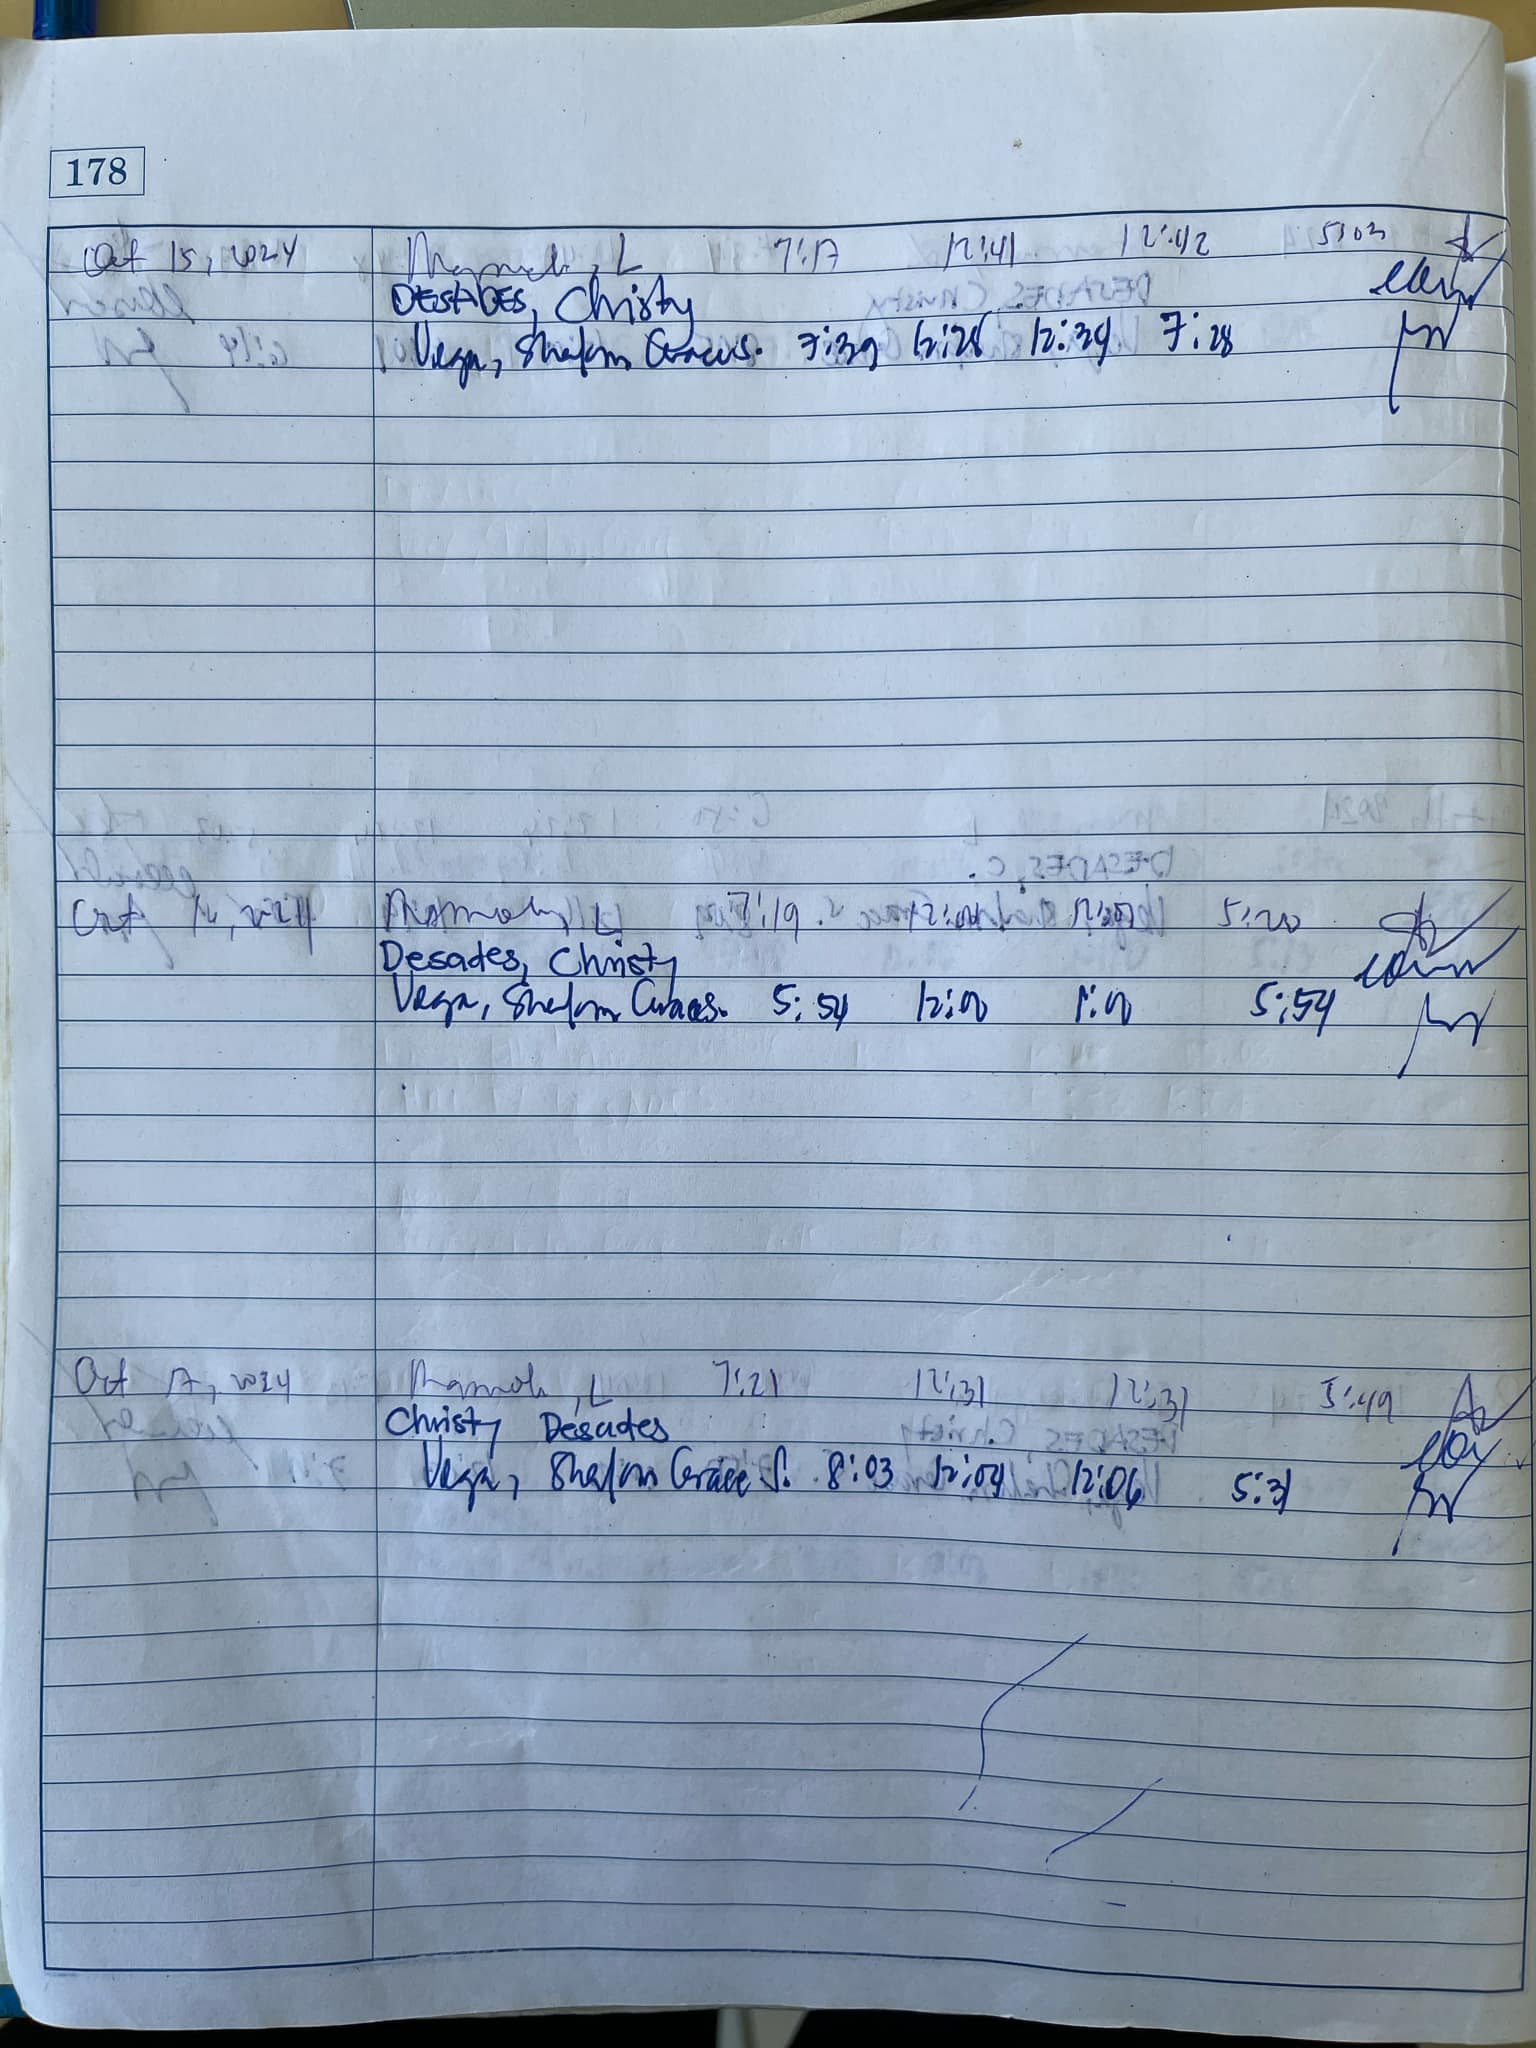 178
Oct 15, 2024 L 7:17 12:41 12:42 5:03
DESADES, Christy
Vega, Shalom Grace S. 7:29 12:28 12:34 7:28
Oct 16, 2024 L 7:19 5:20
Desades, Christy
Vega, Shalom Grace S. 5:54 12:00 1:00 5:54
Oct 17, 2024 L 7:21 12:31 12:31 5:49
Christy Desades
Vega, Shalom Grace S. 8:03 12:04 12:06 5:31